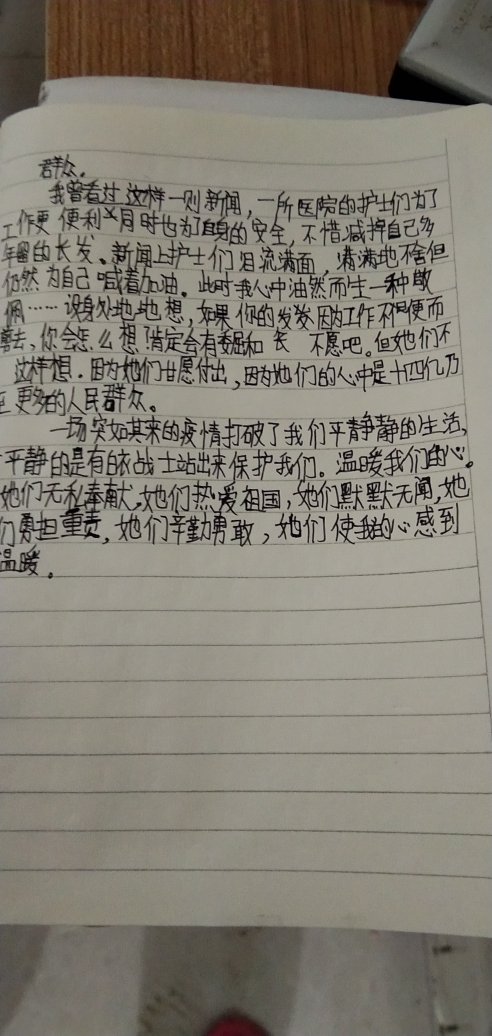 群众。
我曾看过这样一则新闻，一所医院的护士们为了
工作更便利同时也为了自身的安全，不惜减掉自己多
年留的长发。新闻上护士们泪流满面，满满地不舍但
仍然为自己喊着加油。此时我心中油然而生一种敬
佩……设身处地地想，如果你的发发因工作不便而
剪去，你会怎么想？肯定会有委屈和 不愿吧。但她们不
这样想．因为她们甘愿付出，因为她们的心中是十四亿乃
至更多的人民群众。
一场突如其来的疫情打破了我们平静静的生活，
平静的是有白衣战士站出来保护我们。温暖我们的心。
她们无私奉献，她们热爱祖国，她们默默无闻，她
们勇担重责，她们辛勤勇敢，她们使我的心感到
温暖。